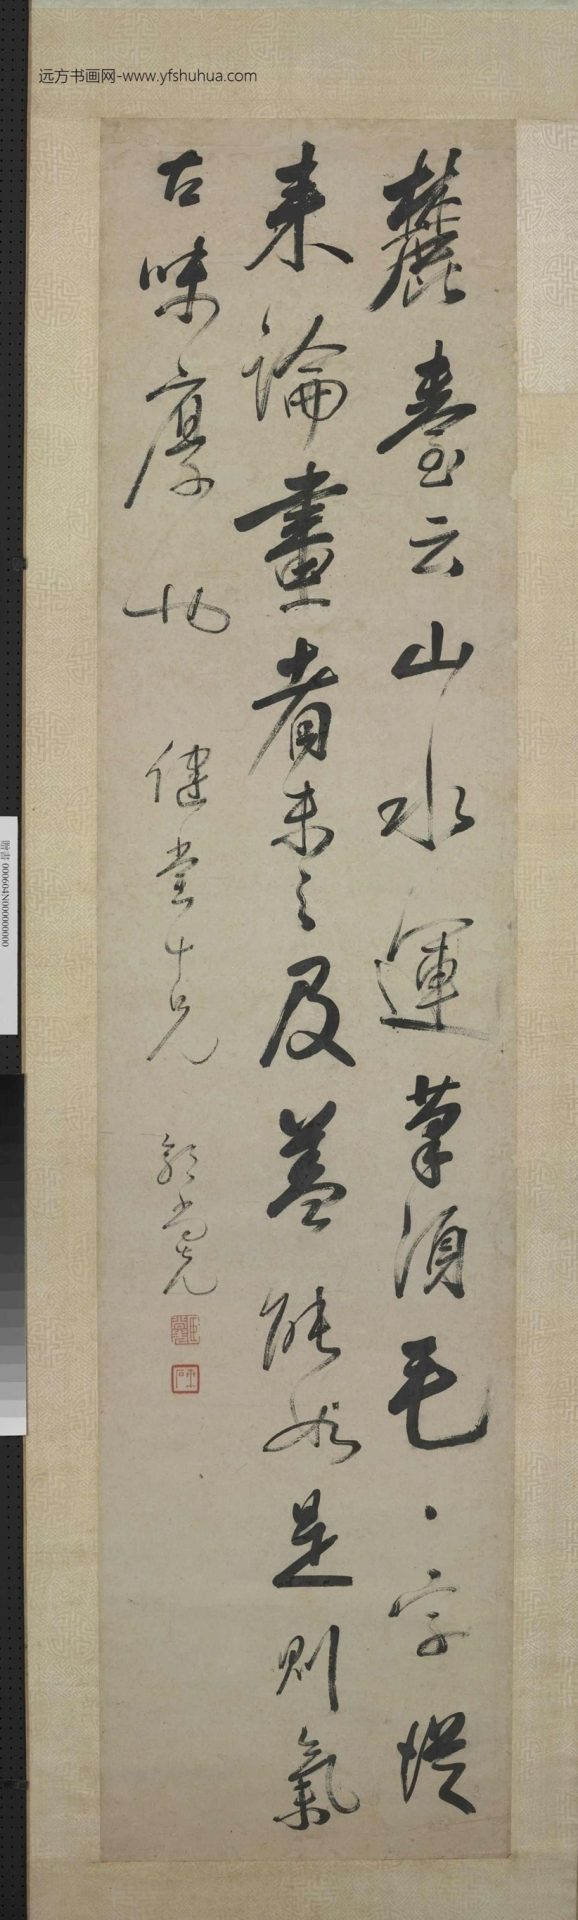 麓臺云山水運筆須毛、字從
来論畫者未之及蓋能如是則氣
古味厚也
健堂十兄
郭尚先
远方书画网-www.yfshuhua.com